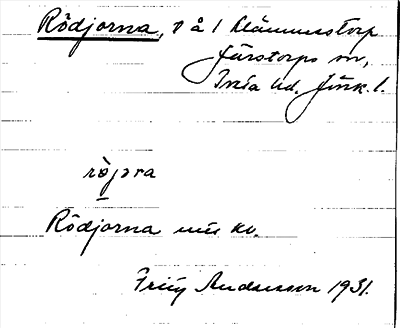 Rödjorna, v å 1 Klämmestorp
Järstorps sn,
Tveta hd. Jönk. l.
röjɔra
Rödjorna mus kv.
Fritz Andersson 1931.